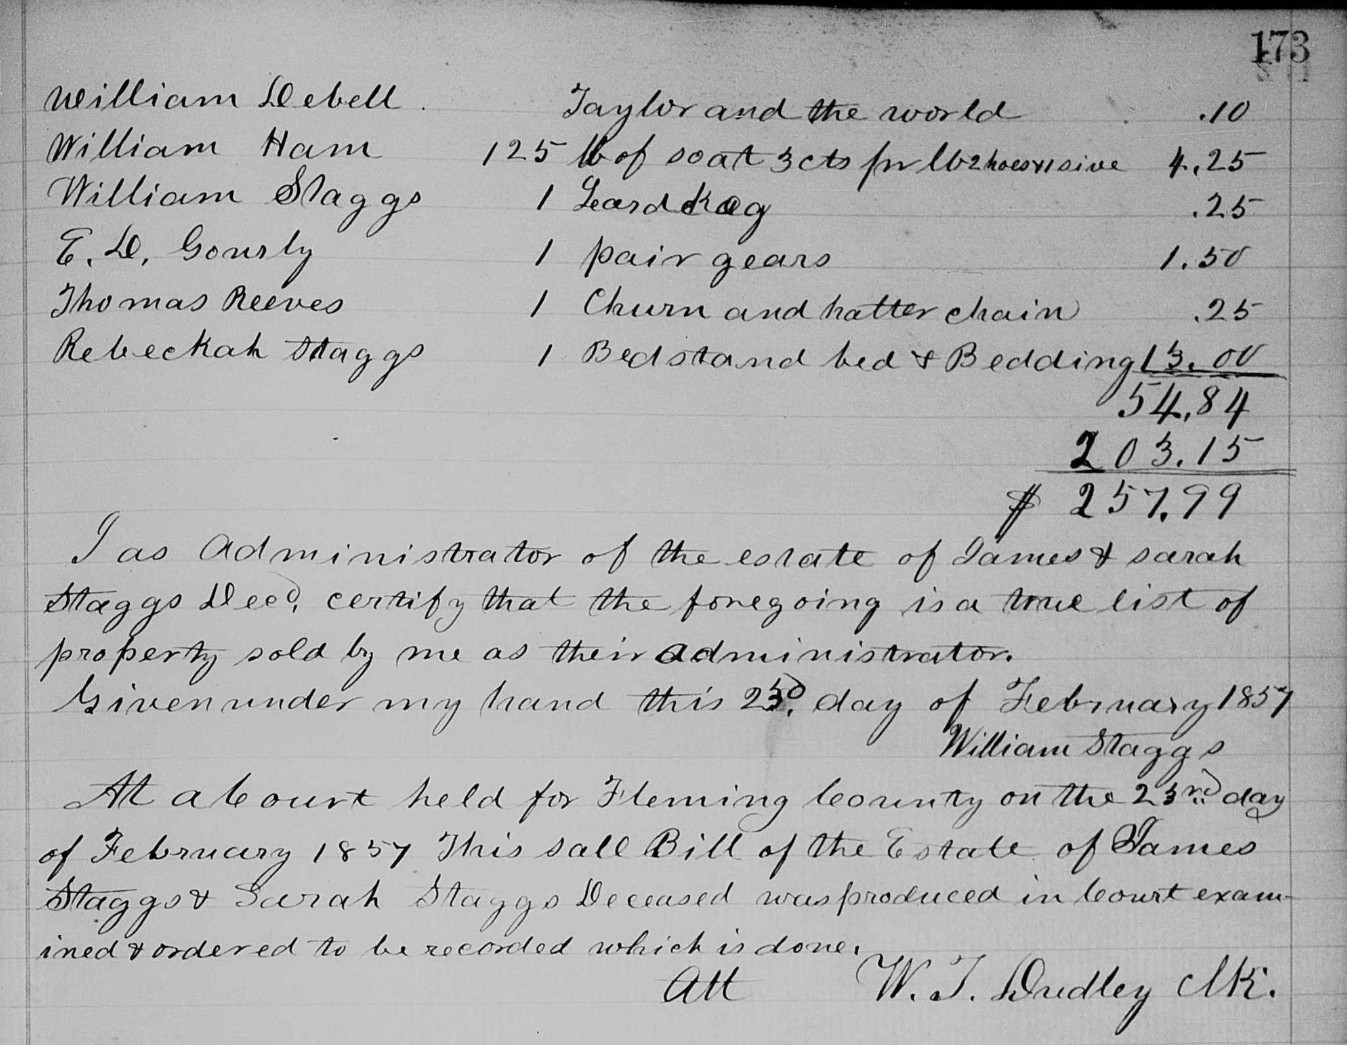 173
William Debell Taylor and the world .10
William Ham 125 lb of soat 3 cts pr lb 2 hoes & 1 sive 4.25
William Staggs 1 Leard Keg .25
E. D. Gourly 1 pair gears 1.50
Thomas Reeves 1 Churn and hatter chain .25
Rebeckah Staggs 1 Bedstand bed & Bedding 13.00
54.84
203.15
$ 257.99
I as Administrator of the estate of James & Sarah
Staggs Decd, certify that the foregoing is a true list of
property sold by me as their administrator.
Given under my hand this 23d. day of February 1857
William Staggs
At a Court held for Fleming County on the 23rd day
of February 1857 This sall Bill of the Estate of James
Staggs & Sarah Staggs Deceased was produced in Court exam-
ined & ordered to be recorded which is done.
Att W. T. Dudley Clk.